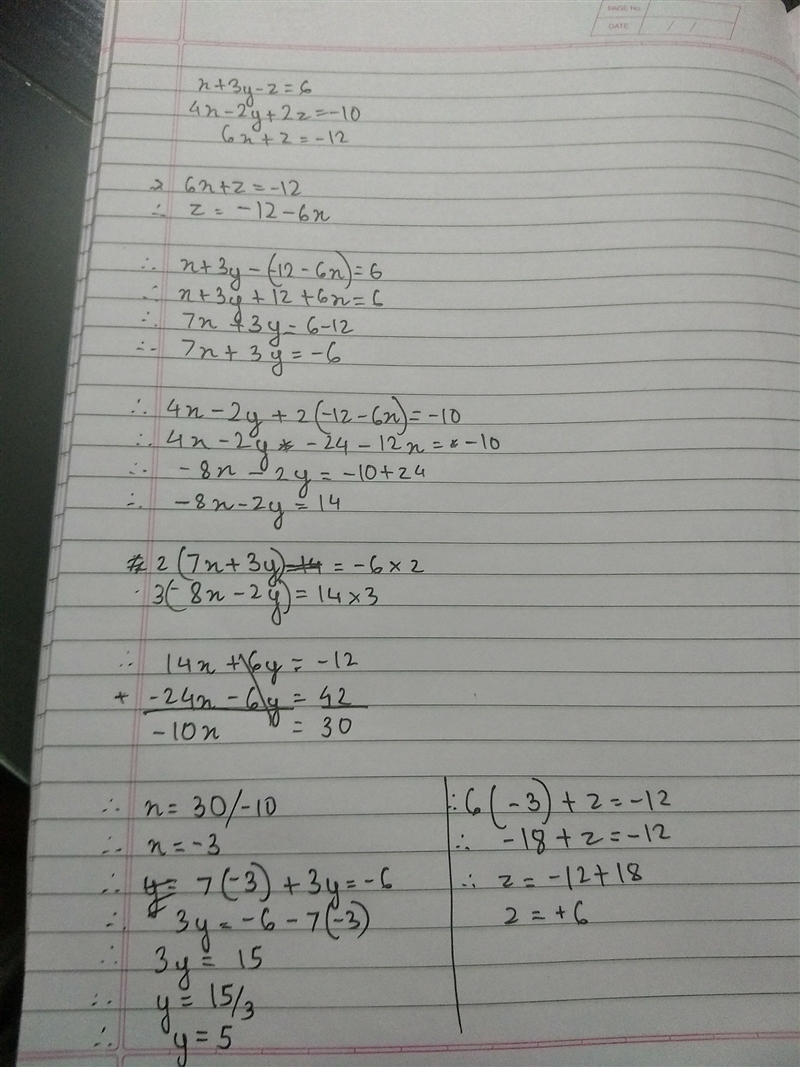 PAGE No.
DATE / /
x+3y-z=6
4x-2y+2z=-10
6x+z=-12
6x+z=-12
∴ z = -12-6x
∴ x+3y-(-12-6x)=6
∴ x+3y+12+6x=6
∴ 7x+3y=6-12
∴ 7x+3y=-6
∴ 4x-2y+2(-12-6x)=-10
∴ 4x-2y -24-12x=-10
∴ -8x-2y=-10+24
∴ -8x-2y=14
2(7x+3y) = -6×2
3(-8x-2y)=14×3
∴ 14x+6y=-12
+ -24x-6y=42
-10x = 30
∴ x=30/-10
∴ x=-3
∴ 7(-3)+3y=-6
∴ 3y=-6-7(-3)
∴ 3y=15
∴ y=15/3
∴ y=5
∴ 6(-3)+z=-12
∴ -18+z=-12
∴ z=-12+18
z=+6